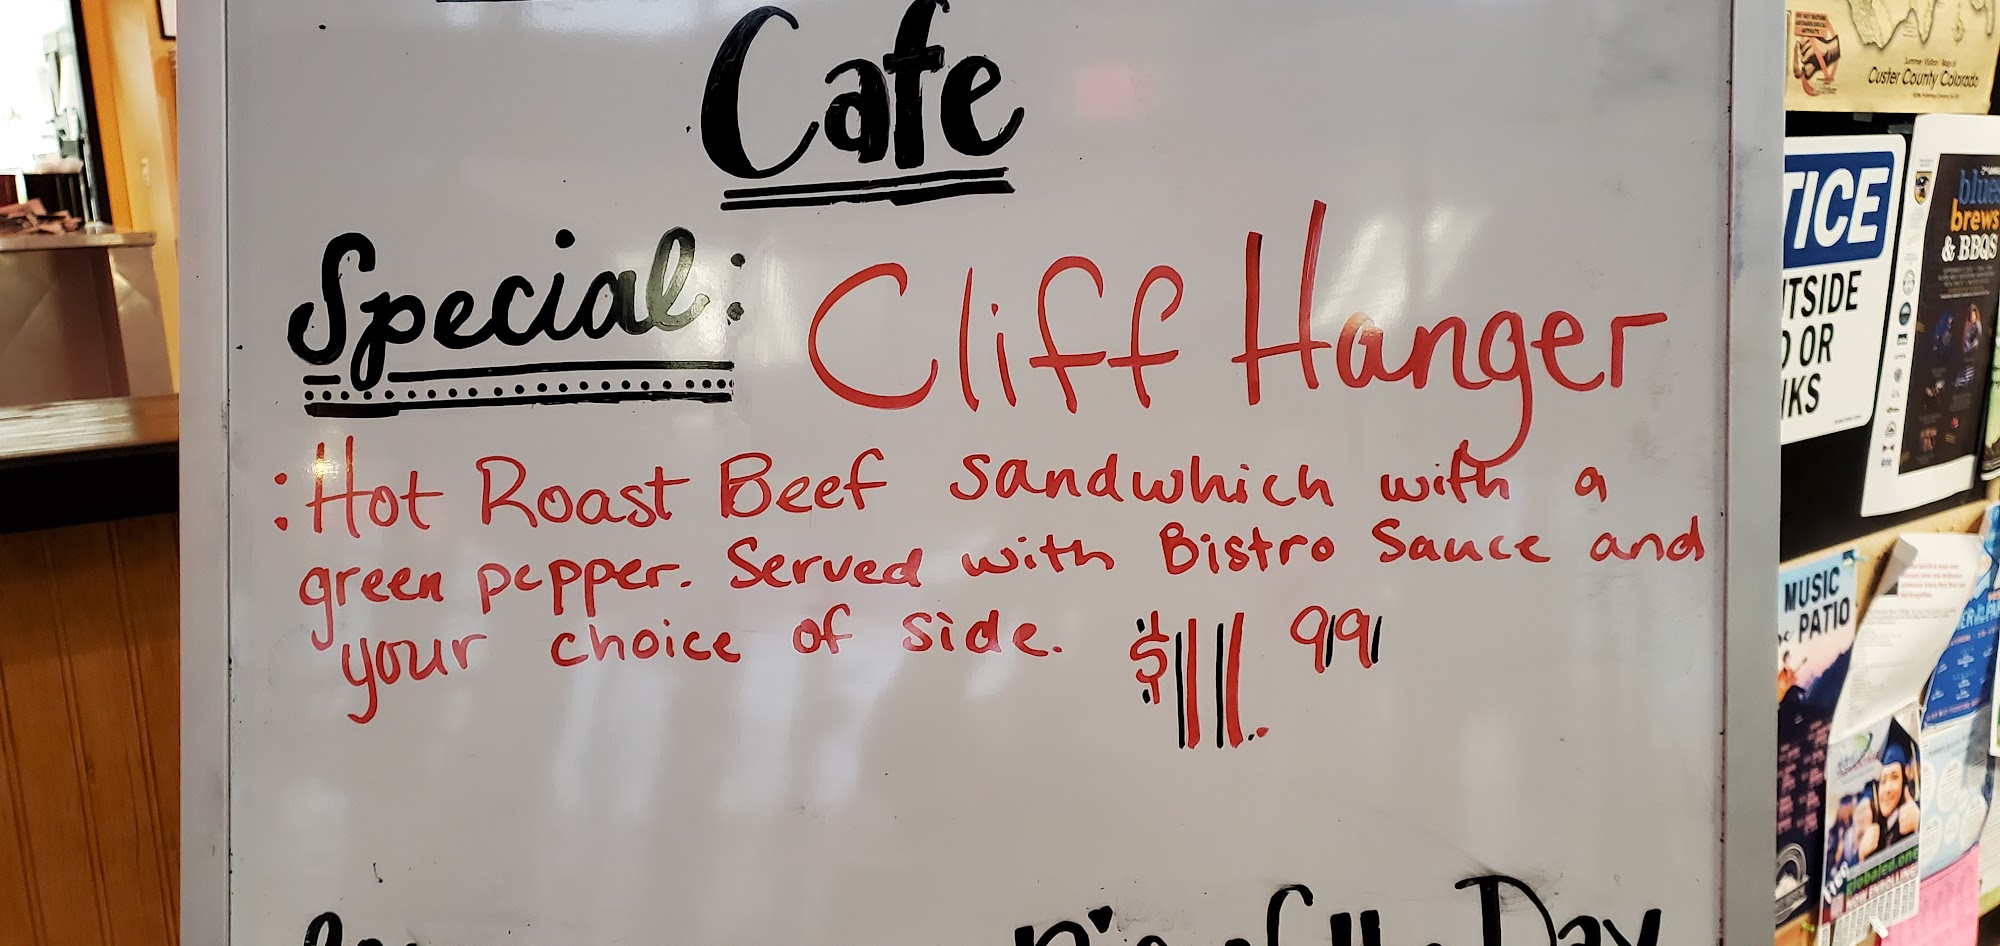 Cafe
Special: Cliff Hanger
: Hot Roast Beef sandwhich with a
green pepper. Served with Bistro Sauce and
your choice of side. $11.99
of the Day
Custer County Colorado
TICE
TSIDE
OR
KS
blues
brews
& BBQS
MUSIC
PATIO
globaled.one